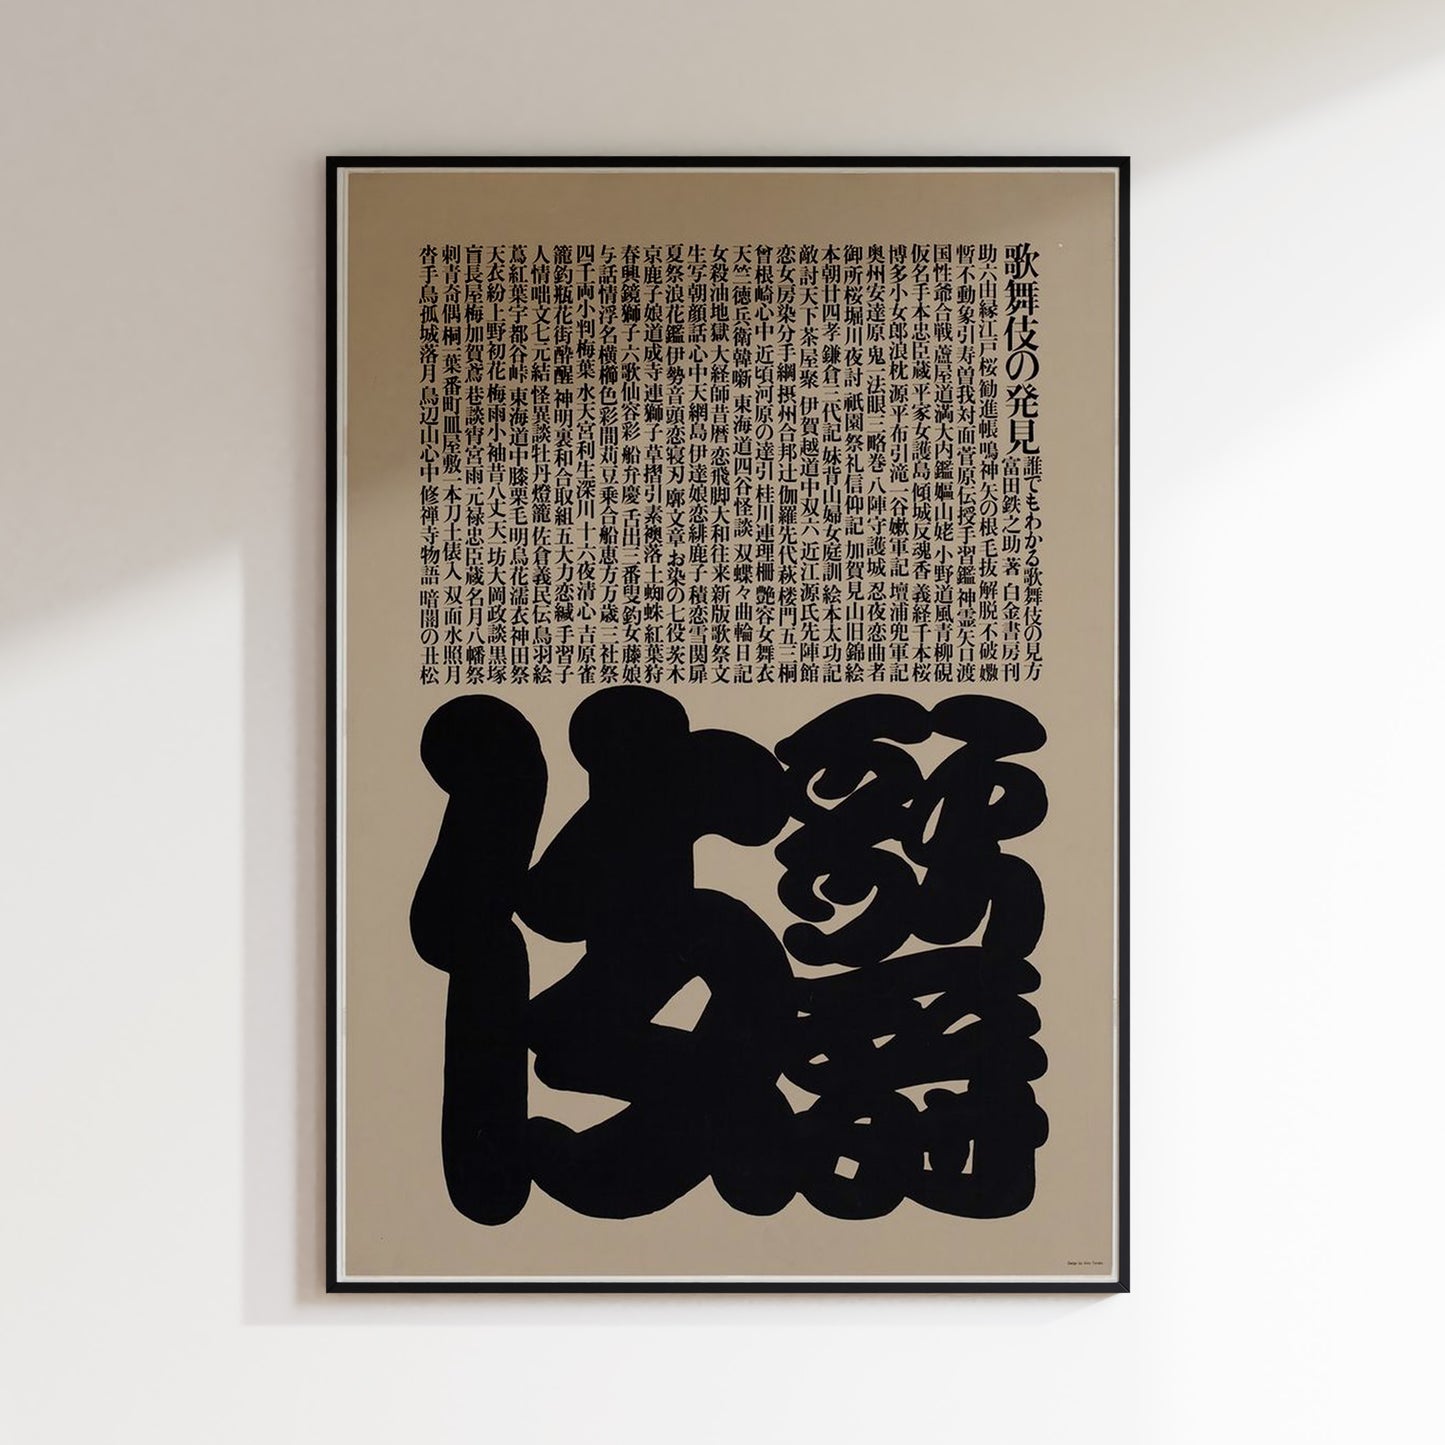 歌舞伎の発見 誰でもわかる歌舞伎の見方
富田鉄之助 著 白金書房刊
助六由縁江戸桜 勧進帳 鳴神 矢の根 毛抜 解脱 不破 嫐
暫 不動 象引 寿曽我対面 菅原伝授手習鑑 神霊矢口渡
国性爺合戦 蘆屋道満大内鑑 嫗山姥 小野道風青柳硯
仮名手本忠臣蔵 平家女護島 傾城反魂香 義経千本桜
博多小女郎浪枕 源平布引滝 一谷嫩軍記 壇浦兜軍記
奥州安達原 鬼一法眼三略巻 八陣守護城 忍夜恋曲者
御所桜堀川夜討 祇園祭礼信仰記 加賀見山旧錦絵
本朝廿四孝 鎌倉三代記 妹背山婦女庭訓 絵本太功記
敵討天下茶屋聚 伊賀越道中双六 近江源氏先陣館
恋女房染分手綱 摂州合邦辻 伽羅先代萩 楼門五三桐
曾根崎心中 近頃河原の達引 桂川連理柵 艶容女舞衣
天竺徳兵衛韓噺 東海道四谷怪談 双蝶々曲輪日記
女殺油地獄 大経師昔暦 恋飛脚大和往来 新版歌祭文
生写朝顔話 心中天網島 伊達娘恋緋鹿子 積恋雪関扉
夏祭浪花鑑 伊勢音頭恋寝刃 廓文章 お染の七役 茨木
京鹿子娘道成寺 連獅子 草摺引 素襖落 土蜘蛛 紅葉狩
春興鏡獅子 六歌仙容彩 船弁慶 舌出三番叟 釣女 藤娘
与話情浮名横櫛 色彩間苅豆 乗合船恵方万歳 三社祭
四千両小判梅葉 水天宮利生深川 十六夜清心 吉原雀
籠釣瓶花街酔醒 神明裏和合取組 五大力恋緘 手習子
人情噺文七元結 怪異談牡丹燈籠 佐倉義民伝 鳥羽絵
蔦紅葉宇都谷峠 東海道中膝栗毛 明烏花濡衣 神田祭
天衣紛上野初花 梅雨小袖昔八丈 天一坊大岡政談 黒塚
盲長屋梅加賀鳶 巷談宵宮雨 元禄忠臣蔵 名月八幡祭
刺青奇偶 桐一葉 番町皿屋敷 一本刀土俵入 双面水照月
沓手鳥孤城落月 鳥辺山心中 修禅寺物語 暗闇の丑松
歌舞
伎
Design by Ikko Tanaka